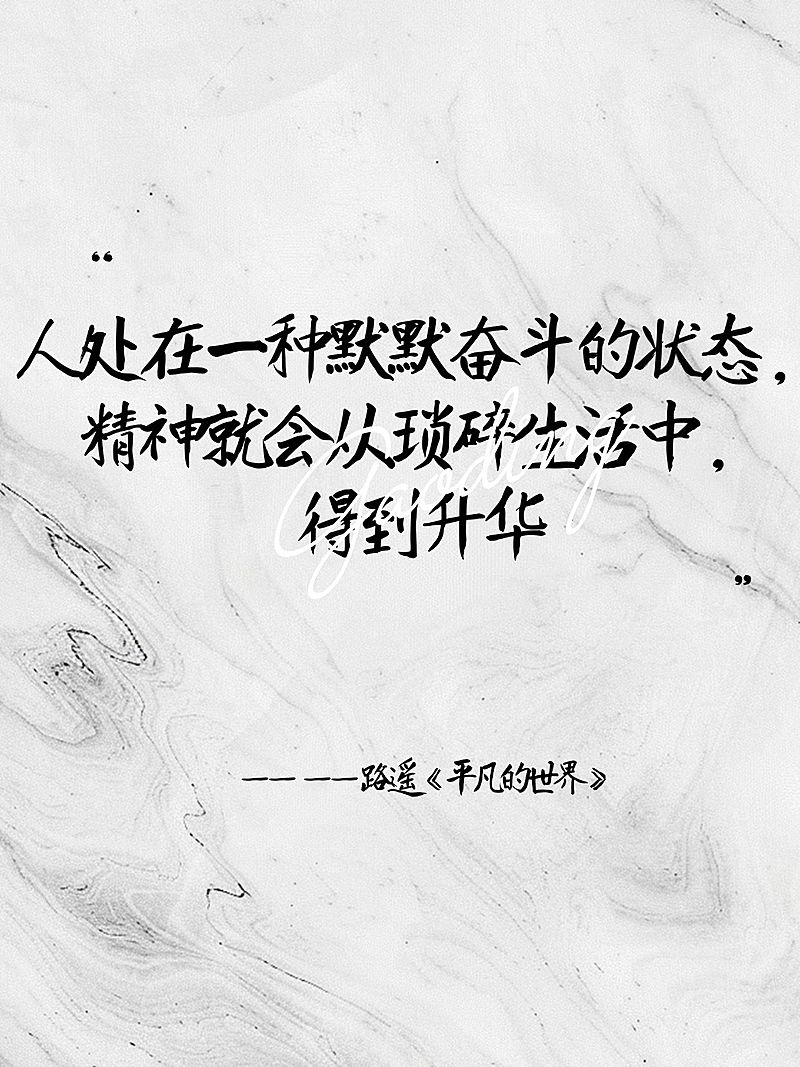 “
人处在一种默默奋斗的状态，
精神就会从琐碎生活中，
得到升华
”
—— ——路遥《平凡的世界》
Gaoding